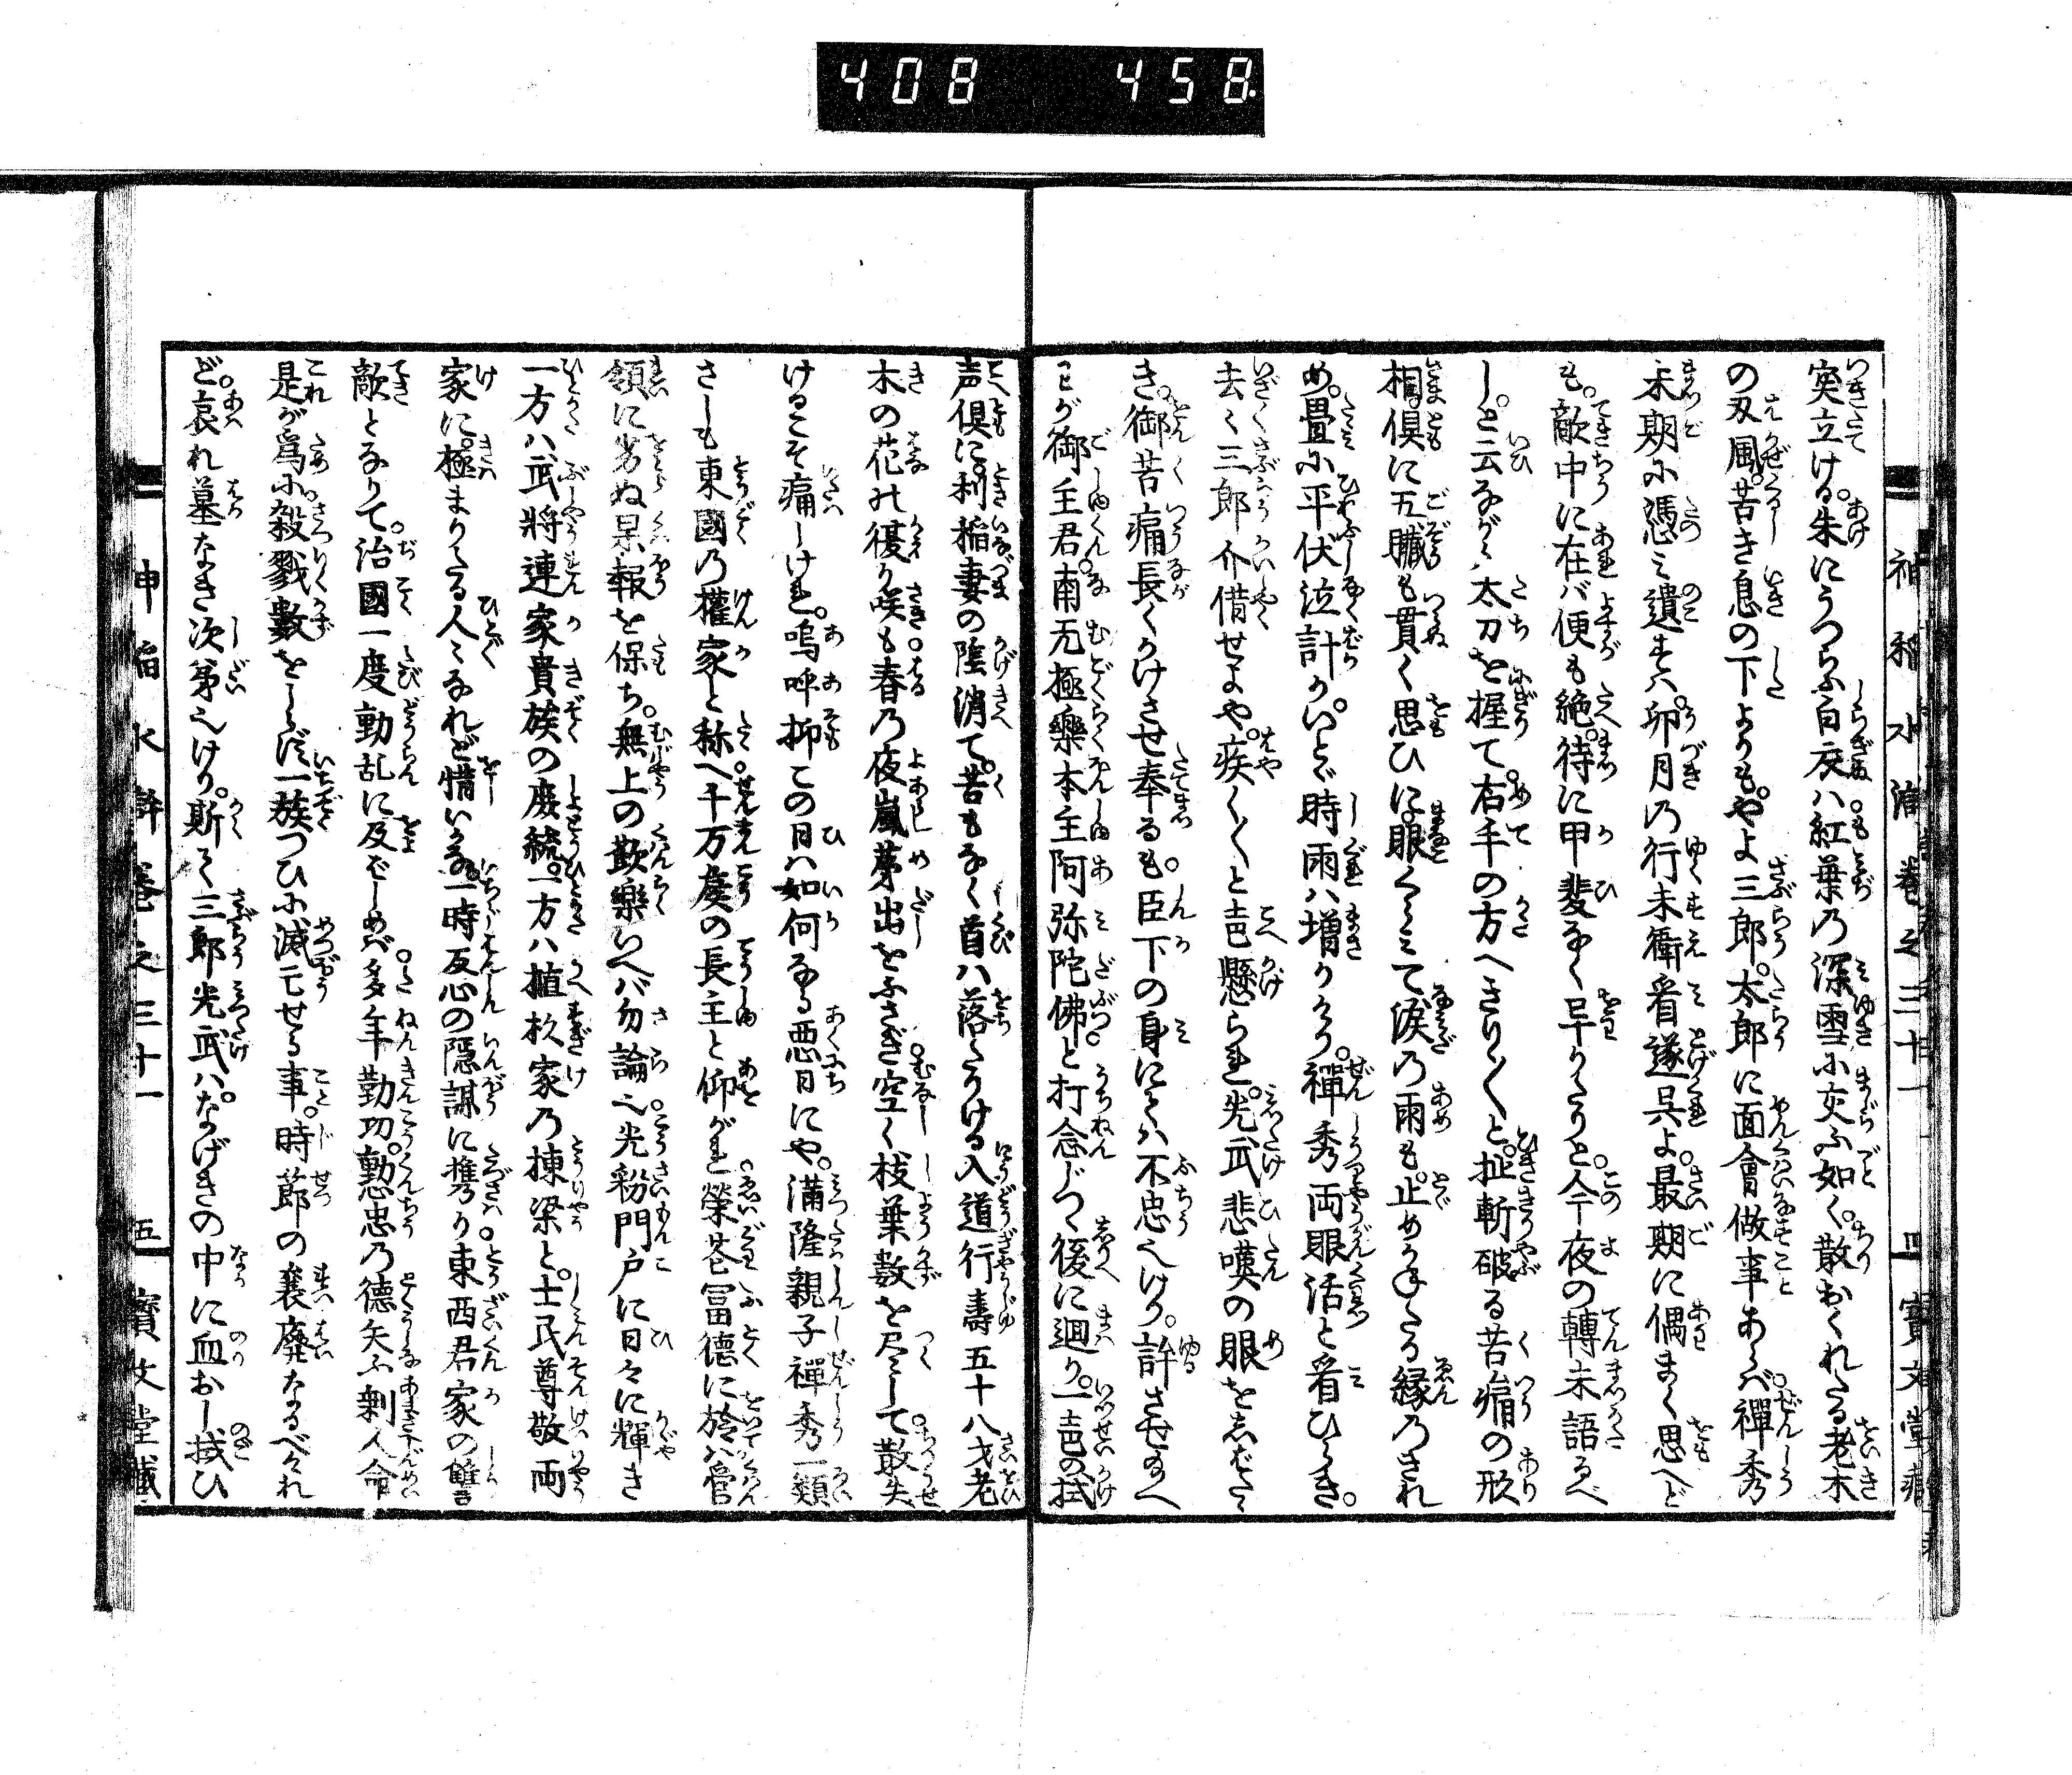 408 458
神稲水滸 巻之三十一 四 寶文堂蔵
突立ける。朱にうつらふ白衣ハ紅葉の深雪に交ふ如く。散おくれたる老木
の刄風。苦き息の下よりも。やよ三郎。太郎に面會做事あらバ。禪秀
末期に憑ミ遺せハ。卯月の行末衛看遂呉よ。最期に偶まく思へど
も。敵中に在バ便も絶。待に甲斐なく早かたりと。今夜の轉末語るべ
し。と云ながら太刀を握て。右手の方へきり〱と。扯斬破る苦痛の形
相。倶に五臓も貫く思ひに。眼くらミて涙の雨も。止めかねたる縁のされ
め。畳に平伏泣計り。いとゞ時雨ハ増りけり。禪秀両眼活と看ひらき。
去く三郎介借せよや。疾く〱と声懸られ。光武悲嘆の眼をしばたゝ
き。御苦痛長くかけさせ奉るも。臣下の身にとハ不忠也けり。許させ給へ
ヒが御主君。南无極樂本主阿弥陀佛。と打念じつゝ後に廻り。一声の拭
声倶に。利稲妻の陰消て。苦もなく首ハ落たりける。入道行壽五十八才。老
木の花れ復り咲も。春の夜嵐芽出をふさぎ。空く枝葉数を尽して。散失
けるこそ痛しけれ。嗚呼抑この日ハ如何なる悪日にや。満隆親子禪秀一類
さしも東國の權家と称へ。千万廣の長主と仰がれ。榮苍冨徳に於ハ管
領に劣ぬ果報を保ち。無上の歡樂いへバ勿論也。光彩門戸に日々に輝き
一方ハ武將連家貴族の庶統。一方ハ植杉家の棟梁と。士民尊敬両
家に極まりたる人々なれど。惜いかな一時反心の隱謀に携り。東西君家の讐
敵となりて。治國一度動乱に及ぼしめバ。多年勤功。勲忠の德矢ふ剩人命
是が爲に殺戮數をしらず。一族つひに滅亡せる事。時節の衰廃なるべけれ
ど。哀れ墓なき次第也けり。斯て三郎光武ハ。なげきの中に血おし拭ひ
神稲水滸 巻之三十一 五 寶文堂蔵